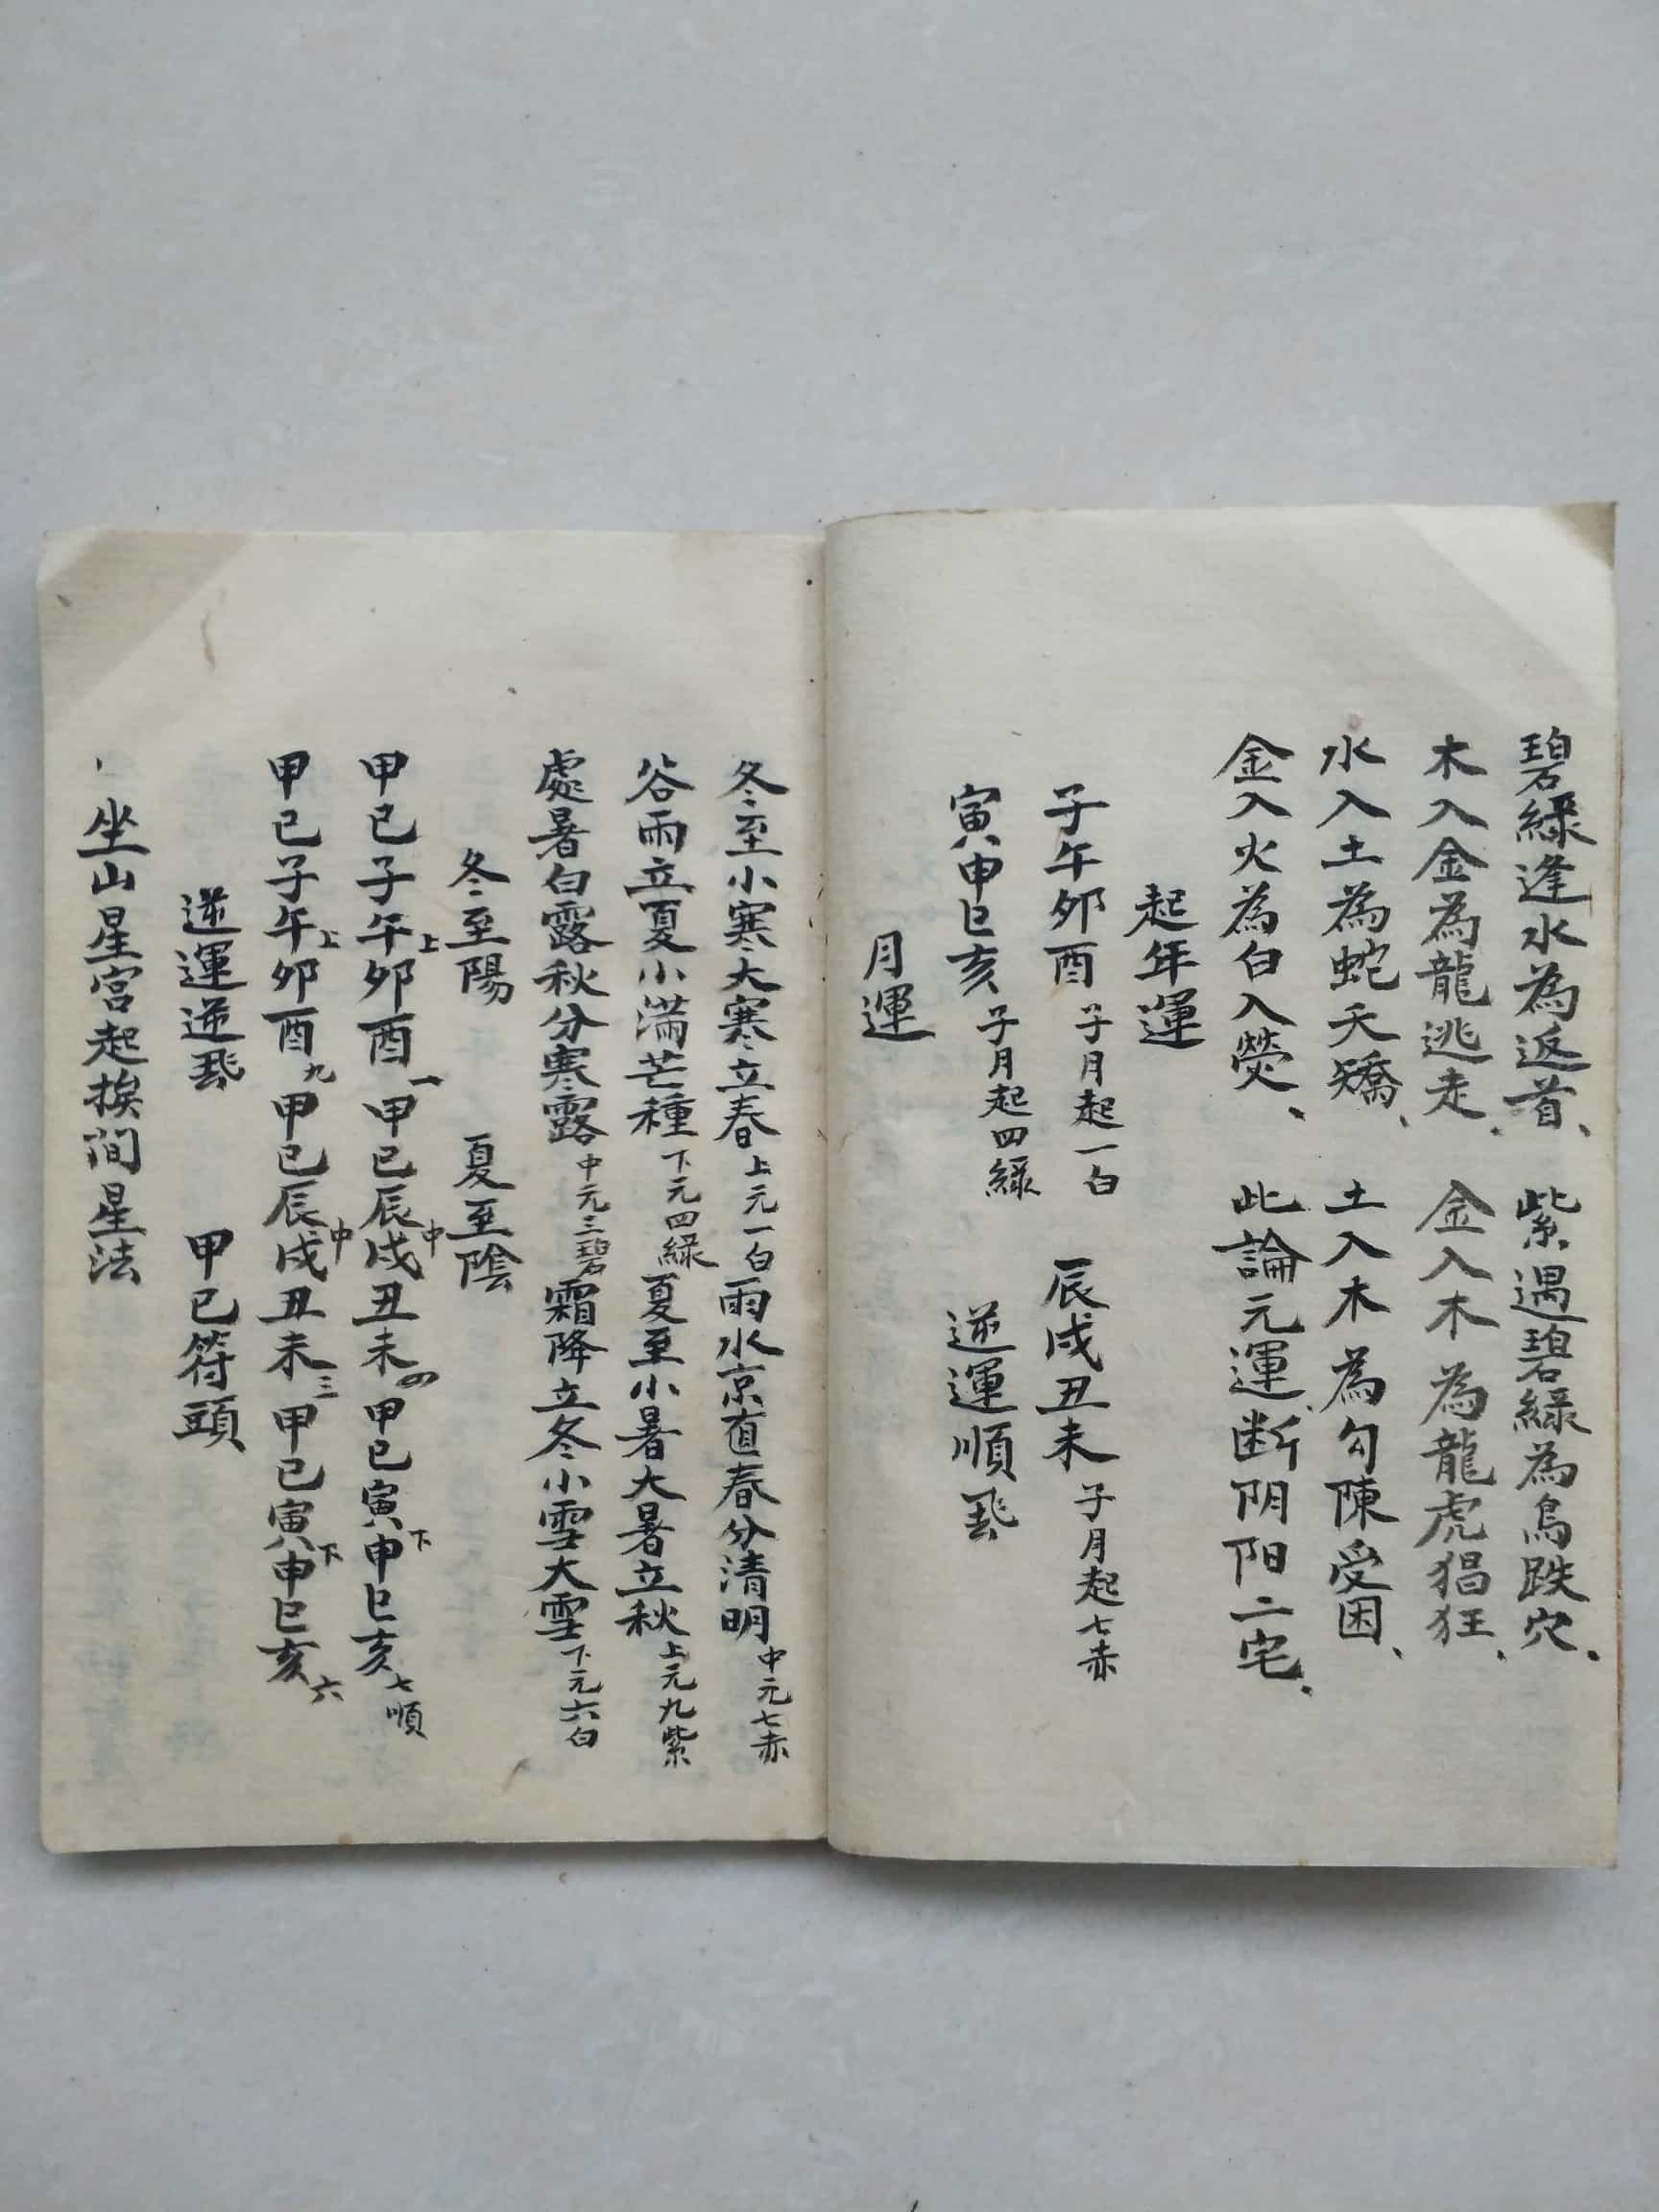 碧綠逢水為返首、紫遇碧綠為鳥跌穴、
木入金為龍逃走、金入木為龍虎猖狂、
水入土為蛇夭矯、土入木為勾陳受困、
金入火為白入熒、此論元運断阴阳二宅、
起年運
子午卯酉子月起一白 辰戌丑未子月起七赤
寅申巳亥子月起四綠 逆運順飛
月運
冬至小寒大寒立春上元一白雨水京直春分清明中元七赤
谷雨立夏小滿芒種下元四綠夏至小暑大暑立秋上元九紫
處暑白露秋分寒露中元三碧霜降立冬小雪大雪下元六白
冬至陽 夏至陰
甲己子午卯酉上一甲己辰戌丑未中四甲己寅申巳亥下七順
甲己子午卯酉上九甲己辰戌丑未中三甲己寅申巳亥下六
逆運逆飛 甲己符頭
坐山星宫起挨间星法